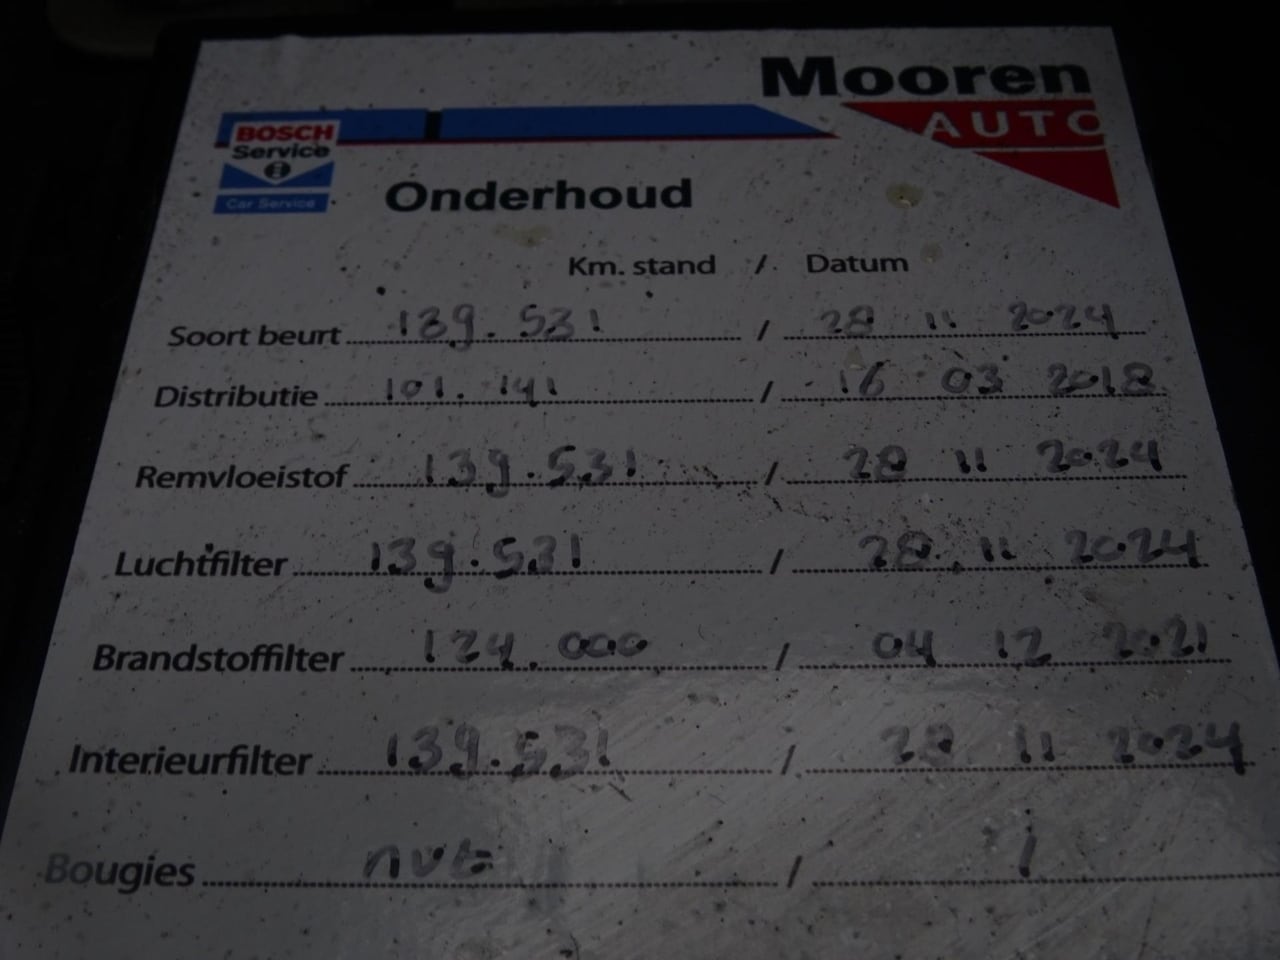 Mooren
AUTO
BOSCH
Service
Car Service
Onderhoud
Km. stand / Datum
Soort beurt 139.531 / 28 11 2024
Distributie 101.141 / 16 03 2018
Remvloeistof 139.531 / 28 11 2024
Luchtfilter 139.531 / 28 11 2024
Brandstoffilter 124.000 / 04 12 2021
Interieurfilter 139.531 / 28 11 2024
Bougies nvt / /